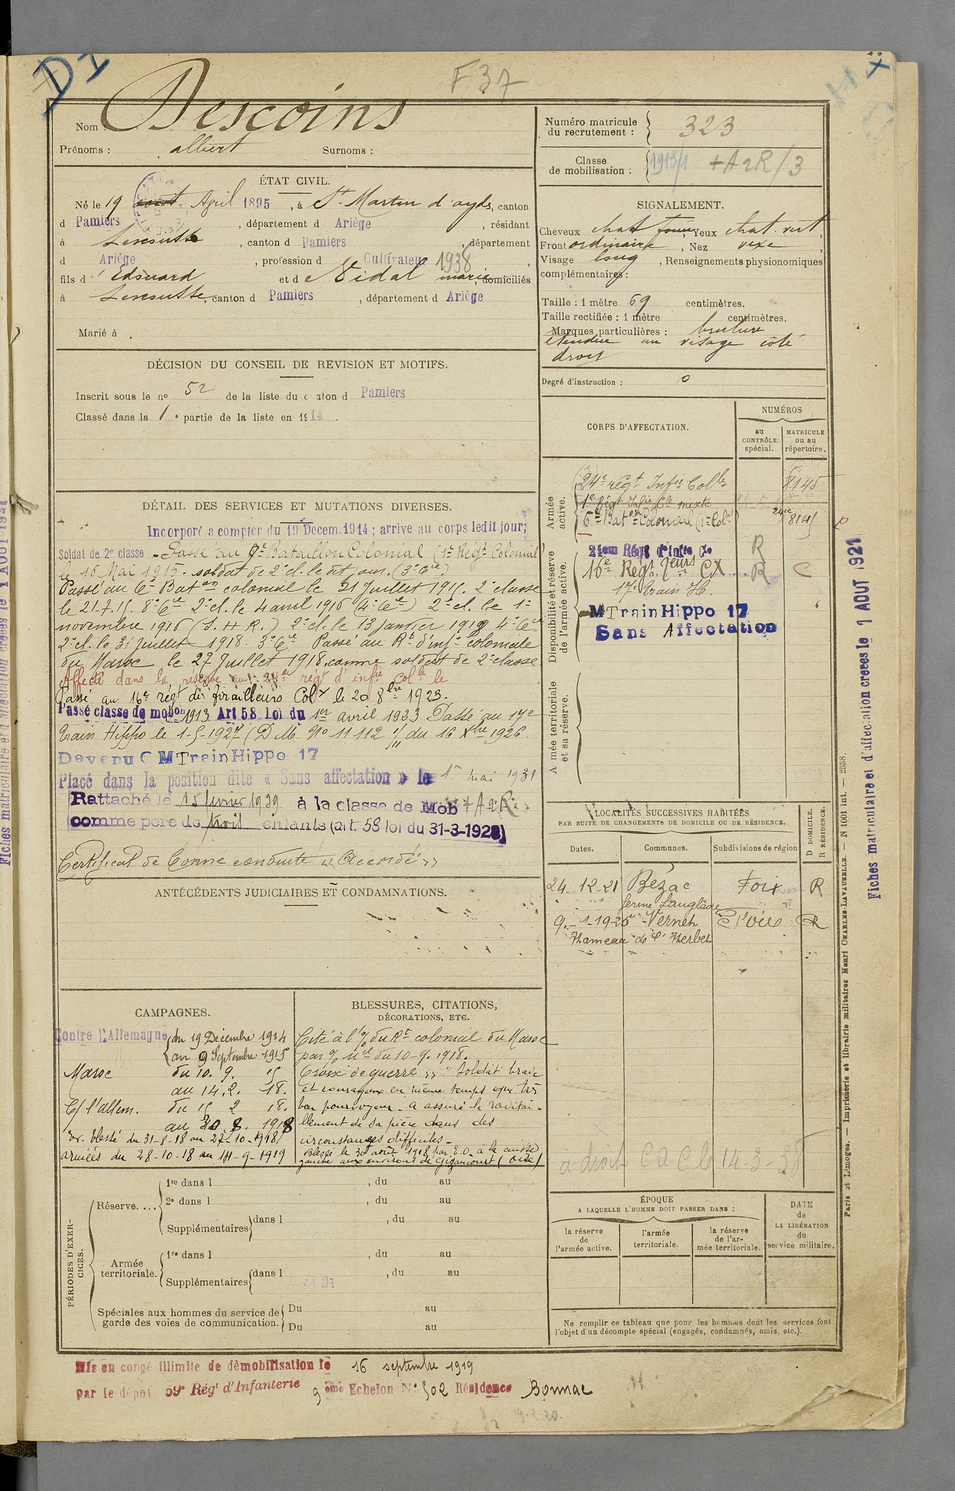 D1
F 37
Nom : Descoins
Prénoms : albert Surnoms :
Numéro matricule du recrutement : 323
Classe de mobilisation : 1913/1 + A2R/3
ÉTAT CIVIL.
Né le 19 août April 1895, à St Martin d'oyds, canton
d Pamiers, département d Ariège, résidant
à Lescousse, canton d Pamiers, département
d Ariège, profession d Cultivateur 1938
fils d' Edouard et de Vidal marie, domiciliés
à Lescousse canton d Pamiers, département d Ariège
Marié à
SIGNALEMENT.
Cheveux chat Yeux chat. vert,
Front ordinaire, Nez vexe,
Visage long, Renseignements physionomiques
complémentaires :
Taille : 1 mètre 69 centimètres.
Taille rectifiée : 1 mètre centimètres.
Marques particulières : brulure
étendue au visage côté
droit
Degré d'instruction : 0
DÉCISION DU CONSEIL DE REVISION ET MOTIFS.
Inscrit sous le no 52 de la liste du canton d Pamiers
Classé dans la 1e partie de la liste en 1914
DÉTAIL DES SERVICES ET MUTATIONS DIVERSES.
Incorporé a compter du 19 Decem. 1914 ; arrive au corps ledit jour;
Soldat de 2e classe - Passé au 9e Bataillon Colonial (1er Régt Colonial)
le 16 Mai 1915. soldat de 2e cl. le dit jour. (3e Cie)
Passé au 6e Baton colonial le 21 Juillet 1915. 2e classe
le 21.7.15. 8e Cie 2e cl. le 4 avril 1916 (4e Cie) 2e cl. le 1er
novembre 1916 (S. H R.) 2e cl. le 13 Janvier 1917 4e Cie
2e cl. le 3 Juillet 1918. 3e Cie Passé au Rt d'infie coloniale
du Maroc le 27 Juillet 1918. comme soldat de 2e classe
Affecté dans la réserve au 24e régt d'infie colle le
Passé au 16e régt de tirailleurs Col le 20 8bre 1923.
Passé classe de mobon 1913 Art 58 Loi du 1er avril 1923 Passé au 17e
Train Hippo le 1-5-1927 (D.M. No 11112 1/11 du 16 Xbre 1926
Devenu C M Train Hippo 17
Placé dans la position dite « Sans affectation » le 1er mai 1931
Rattaché le 15 février 1939 à la classe de Mob + A2R
comme père de trois enfants (art. 58 loi du 31-3-1928)
Certificat de bonne conduite « Accordé »
ANTÉCÉDENTS JUDICIAIRES ET CONDAMNATIONS.
CORPS D'AFFECTATION.
NUMÉROS
au CONTRÔLE spécial.
MATRICULE ou au répertoire.
Armée active.
24e régt Infie Colle 8145
6e Baton Colonial (1er Col) 8141
Disponibilité et réserve de l'armée active.
24eme Régt d'Infie Cle R
16e Régt Teurs CX R C
17e Train H.
M Train Hippo 17
Sans Affectation
Armée territoriale et sa réserve.
LOCALITÉS SUCCESSIVES HABITÉES
PAR SUITE DE CHANGEMENTS DE DOMICILE OU DE RÉSIDENCE.
Dates. Communes. Subdivisions de région
D DOMICILE. R RÉSIDENCE.
24-12-21 Bézac Foix R
ferme Langlade
9-1-1925 Vernet Foix R
Hameau de l'Herbet
CAMPAGNES.
Contre L'Allemagne du 19 Décembre 1914
au 9 Septembre 1915
Maroc du 10. 9. 15
au 14. 2. 18.
C/ l'allem. du 15 2 18.
au 30. 8. 1918
Int. blessé du 31-8-18 au 27-10-1918
armées du 28-10-18 au 14-9-1919
BLESSURES, CITATIONS, DÉCORATIONS, ETC.
Cité à l'o/ du Rt colonial du Maroc
par o/ No du 10-9. 1918.
Croix de guerre « Soldat brave
et courageux en même temps que très
bon pourvoyeur - a assuré le ravitail-
lement de sa pièce dans des
circonstances difficiles -
Blessé le 30 août 1918 par E.O. à la cuisse
gauche aux environs de (Oise)
à droit C a C le 14-3-35
PÉRIODES D'EXERCICES.
Réserve.... 1re dans l , du au
2e dans l , du au
Supplémentaires dans l , du au
Armée territoriale. 1re dans l , du au
Supplémentaires dans l , du au
Spéciales aux hommes du service de garde des voies de communication. Du au
Du au
ÉPOQUE
A LAQUELLE L'HOMME DOIT PASSER DANS :
la réserve de l'armée active.
l'armée territoriale.
la réserve de l'armée territoriale.
DATE de LA LIBÉRATION du service militaire.
Ne remplir ce tableau que pour les hommes dont les services font
l'objet d'un décompte spécial (engagés, condamnés, omis, etc.).
Mis en congé illimité de démobilisation le 16 septembre 1919
par le dépôt 59e Régt d'Infanterie 9ème Echelon No 502 Résidence Bonnac
19-2-20.
Fiches matriculaire et d'affectation créées le 1 AOUT 1921
Paris et Limoges. — Imprimerie et librairie militaires Henri CHARLES-LAVAUZELLE. — N 1001 int. — 2358.